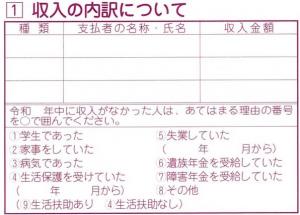 1 収入の内訳について
種類 支払者の名称・氏名 収入金額
令和 年中に収入がなかった人は、あてはまる理由の番
号を○で囲んでください。
①学生であった ⑤失業していた
②家事をしていた ( 年 月から)
③病気であった ⑥遺族年金を受給していた
④生活保護を受けていた ⑦障害年金を受給していた
( 年 月から) ⑧その他
(⑨生活扶助あり ④生活扶助なし)